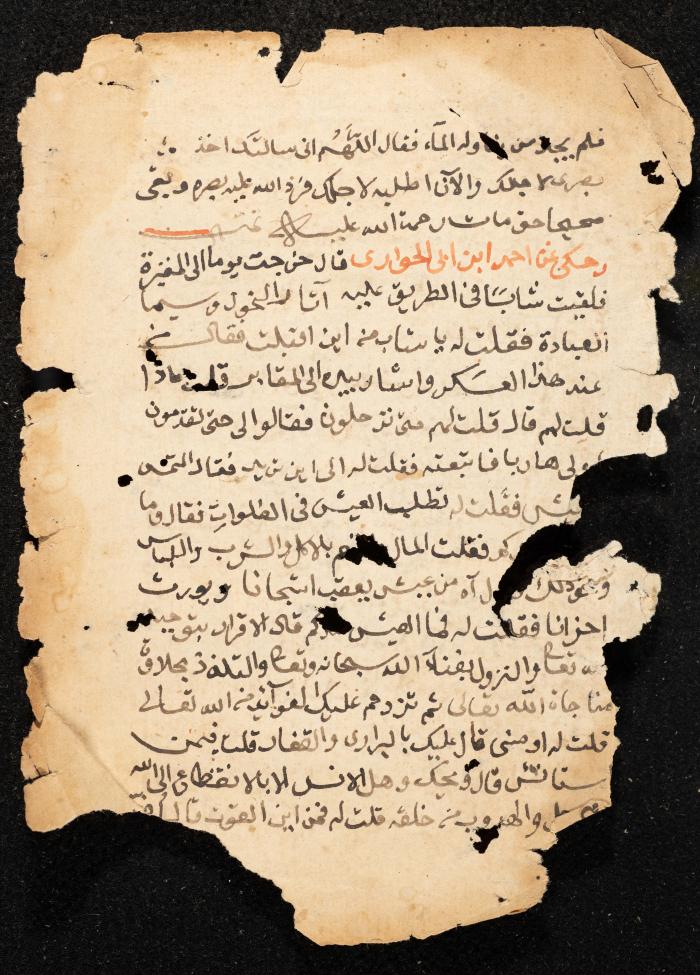 فلم يجد من يناوله الماء فقال اللهم انى سالتك اخذ
بصرى لاجلك والآن اطلبه لاجلك فرد الله عليه بصره وبقى
صحيحا حتى مات رحمة الله عليه
وحكى عن احمد ابن ابى الحوارى قال خرجت يوما الى المقبرة
فلقيت شابا فى الطريق عليه آثار النحول وسيما
العبادة فقلت له يا شاب من اين اقبلت فقال من
عند هذا العسكر واشار بيده الى المقابر قلت ماذا
قلت لهم قال قلت لهم متى ترحلون فقالوا لى حتى تقدمون
ولى هاربا فاتبعته فقلت له الى اين تريد فقال التمس
العيش فقلت له تطلب العيش فى الفلوات فقال وما
فقلت المال بالاكل والشرب واللباس
ونحو ذلك قال آه من عيش يعقب اشجانا ويورث
احزانا فقلت له فما العيش عندكم قال الاقرار بتوحيد
الله تعالى والنزول بفناء الله سبحانه وتعالى والتلذذ بحلاوة
مناجاة الله تعالى ثم تزدحم عليك الفوائد من الله تعالى
قلت له اوصنى قال عليك بالبرارى والقفار قلت فبمن
استانس قال ويحك وهل الانس الا بالانقطاع الى الله
والهروب من خلقه قلت له فمن اين القوت قال